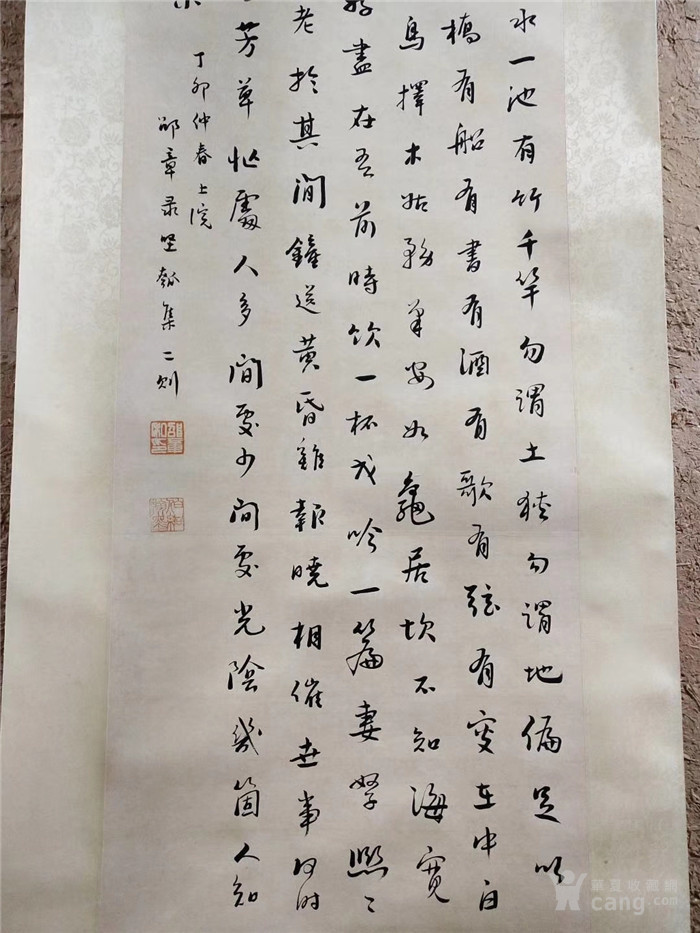 水一池有竹千竿勿謂土狹勿謂地偏足以
橋有船有書有酒有歌有弦有叟在中白
鳥擇木姑務巢安如龜居坎不知海寬
好盡在吾前時飲一杯或吟一篇妻孥熙〻
老於其間鐘送黃昏雞報曉相催世事何時
芳草忙處人多閒處少閒處光陰幾箇人知
丁卯仲春上浣
邵章录堅瓠集二則
華夏收藏網
cang.com